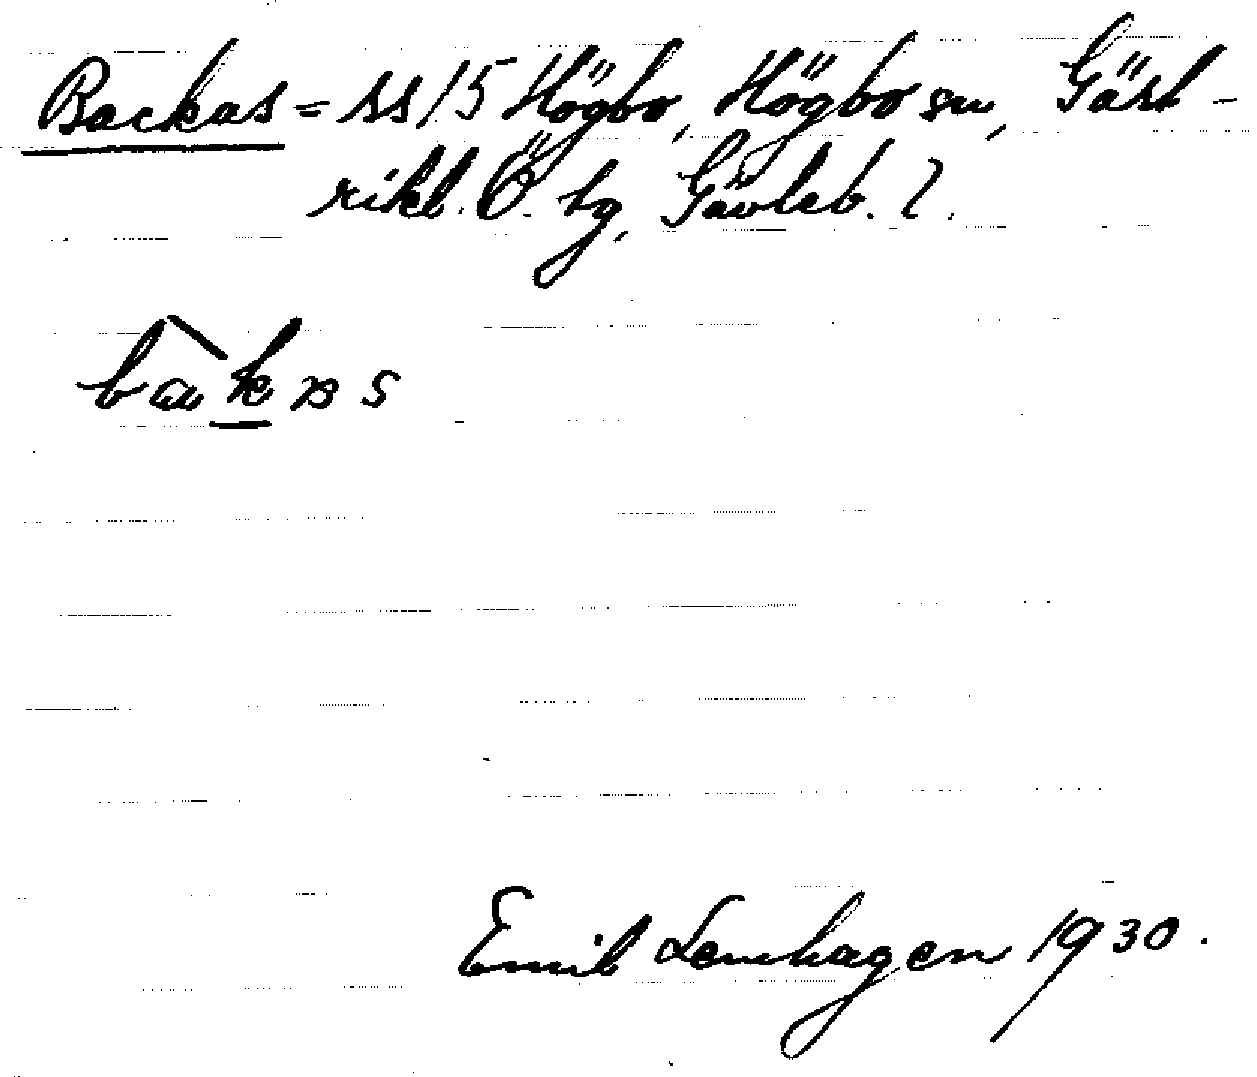 Backas = ss/5 Högbo, Högbo sn, Gäst-
rikl. Ö. tg, Gävleb. l.
bàkas
Emil Lenhagen 1930.